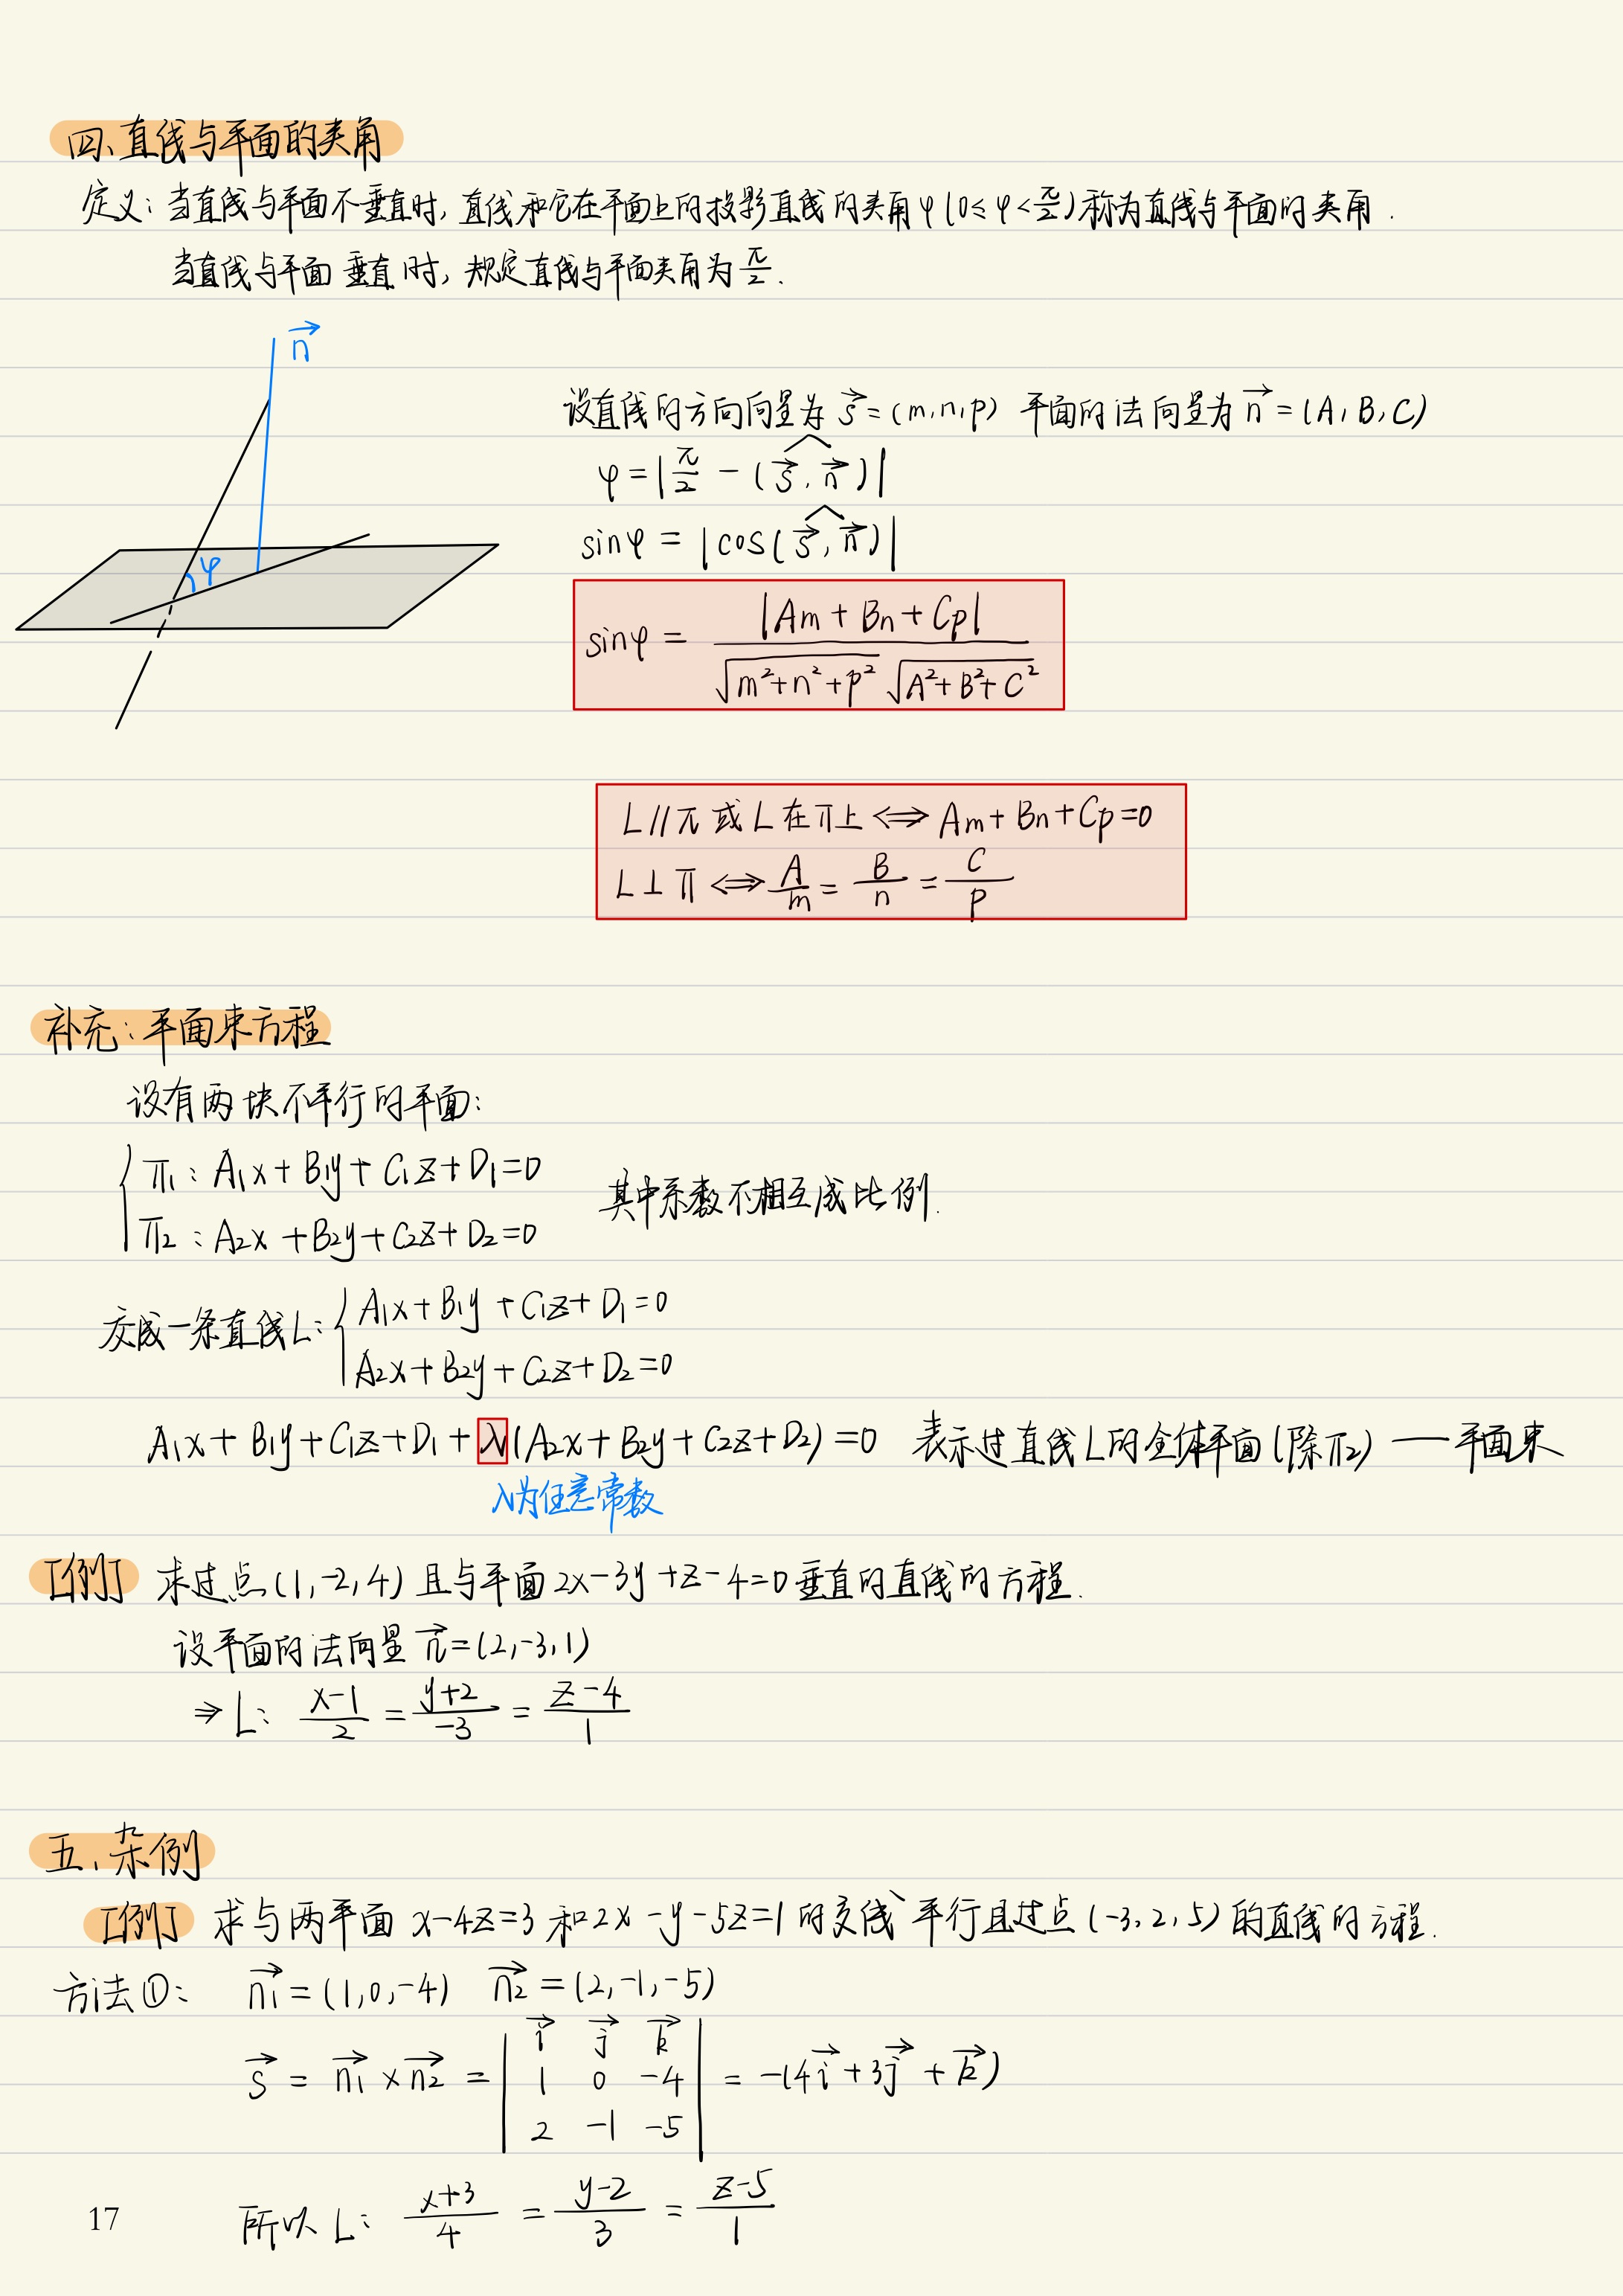 四、直线与平面的夹角
定义：当直线与平面不垂直时，直线和它在平面上的投影直线的夹角φ(0≤φ<π/2)称为直线与平面的夹角.
当直线与平面垂直时，规定直线与平面夹角为π/2.
n→
φ
设直线的方向向量为 s→=(m,n,p) 平面的法向量为 n→=(A,B,C)
φ=|π/2-(s→,n→)|
sinφ=|cos(s→,n→)|
sinφ=|Am+Bn+Cp|/(√(m²+n²+p²)√(A²+B²+C²))
L//π 或 L 在π上⟺Am+Bn+Cp=0
L⊥π⟺A/m=B/n=C/p
补充：平面束方程
设有两块不平行的平面：
π₁：A₁x+B₁y+C₁z+D₁=0
π₂：A₂x+B₂y+C₂z+D₂=0
其中系数不相互成比例.
交成一条直线L：{A₁x+B₁y+C₁z+D₁=0
A₂x+B₂y+C₂z+D₂=0
A₁x+B₁y+C₁z+D₁+λ(A₂x+B₂y+C₂z+D₂)=0 表示过直线L的全体平面(除π₂)——平面束
λ为任意常数
[例] 求过点(1,-2,4)且与平面2x-3y+z-4=0垂直的直线的方程.
设平面的法向量 n→=(2,-3,1)
⇒L：(x-1)/2=(y+2)/-3=(z-4)/1
五、杂例
[例] 求与两平面 x-4z=3 和2x-y-5z=1的交线平行且过点(-3,2,5)的直线的方程.
方法①： n₁→=(1,0,-4) n₂→=(2,-1,-5)
s→=n₁→×n₂→=|i→ j→ k→
1 0 -4
2 -1 -5|=-(4i→+3j→+k→)
所以 L：(x+3)/4=(y-2)/3=(z-5)/1
17